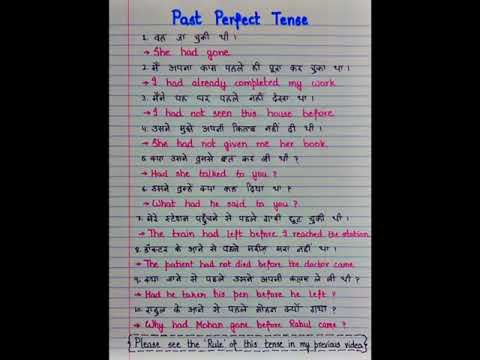 Past Perfect Tense
1. वह जा चुकी थी ।
→ She had gone
2. मैं अपना काम पहले ही पूरा कर चुका था ।
→ I had already completed my work
3. मैंने यह घर पहले नहीं देखा था ।
→ I had not seen this house before
4. उसने मुझे अपनी किताब नहीं दी थी ।
→ She had not given me her book.
5. क्या उसने तुमसे बात कर ली थी ?
→ Had she talked to you ?
6. उसने तुम्हें क्या कह दिया था ?
→ What had he said to you ?
7. मेरे स्टेशन पहुँचने से पहले गाड़ी छूट चुकी थी ।
→ The train had left before I reached the station
8. डॉक्टर के आने से पहले मरीज मरा नहीं था ।
→ The patient had not died before the doctor came
9. क्या जाने से पहले उसने अपनी कलम ले ली थी ?
→ Had he taken his pen before he left ?
10. राहुल के आने से पहले मोहन क्यों गया ?
→ Why had Mohan gone before Rahul came ?
Please see the 'Rule' of this tense in my previous video